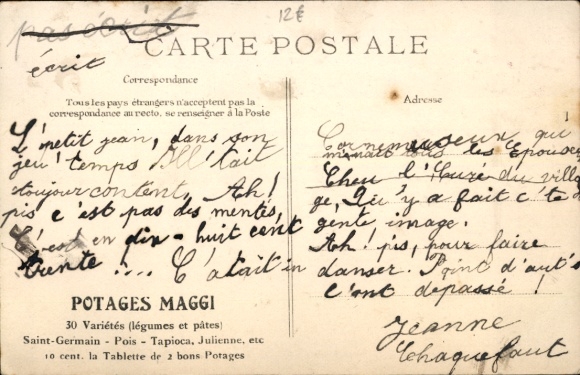 12€
pas écrit
écrit
CARTE POSTALE
Correspondance
Tous les pays étrangers n'acceptent pas la
correspondance au recto. se renseigner à la Poste
L'petit jean, dans son
jeu' temps Ill'tait
toujour content, Ah!
pis c'est pas des mentes,
C'est en dix-huit cent
trente !... C'atait in
POTAGES MAGGI
30 Variétés (légumes et pâtes)
Saint-Germain - Pois - Tapioca, Julienne, etc
10 cent. la Tablette de 2 bons Potages
Adresse
Cornemuseux qui
m'nait tous les Epousés
Cheu l'Maire du villa
ge, Qu'y a fait c'te
gente image.
Ah! pis, pour faire
danser. Point d'aut's
l'ont depassé !
Jeanne
Chaquefaut